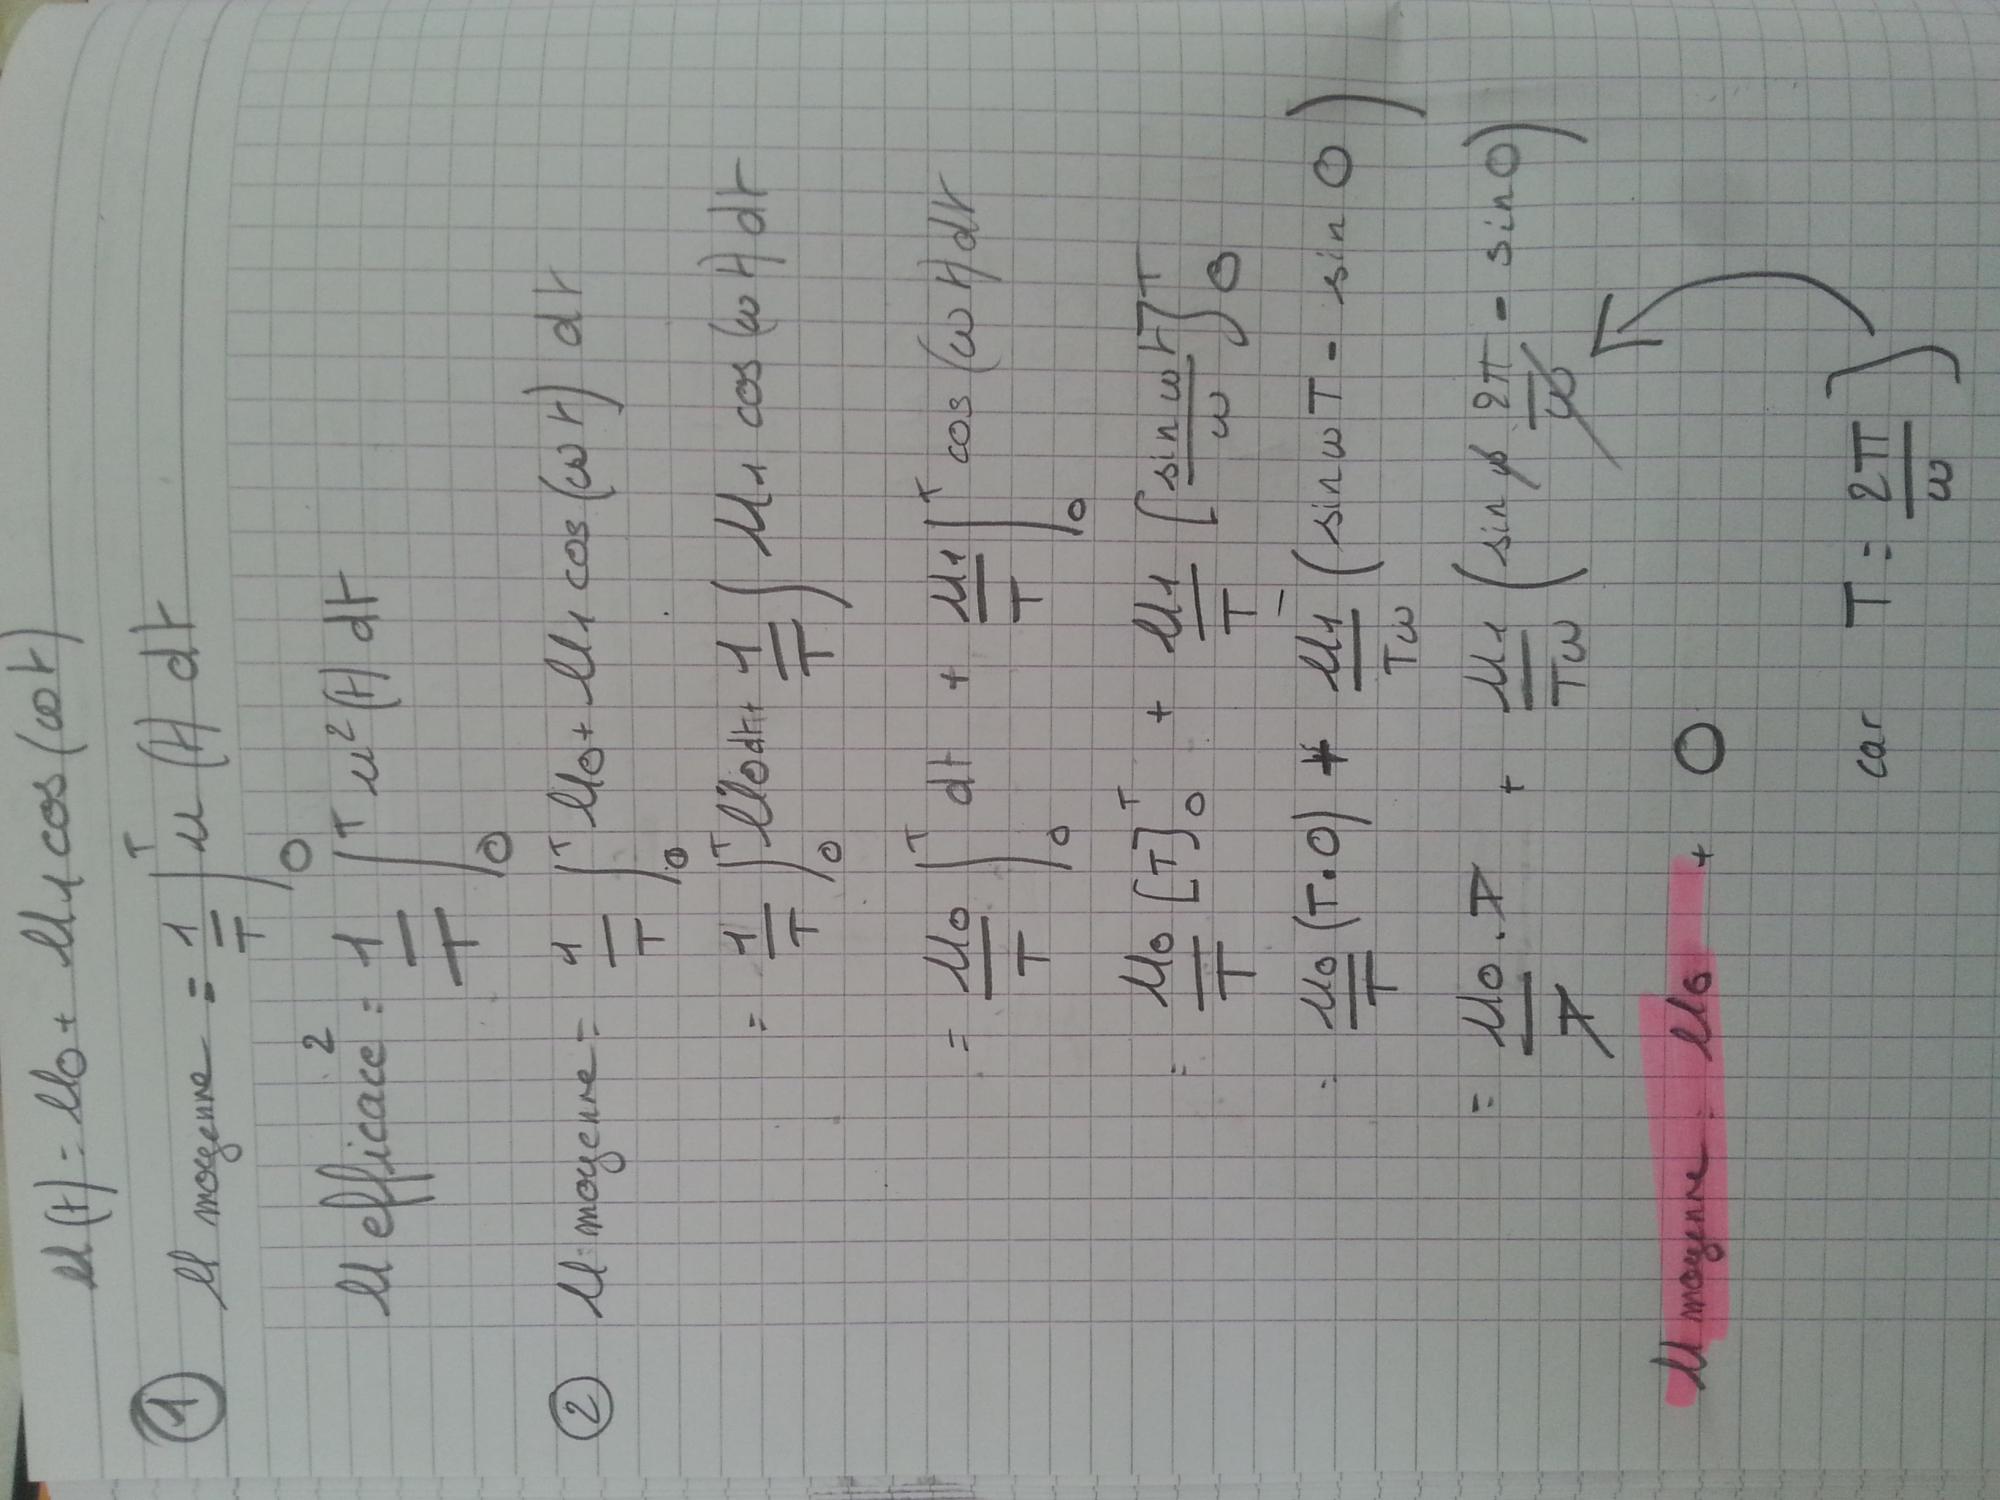 u(t) = U0 + U1 cos(ωt)
① U moyenne = 1/T ∫₀ᵀ u(t) dt
U efficace² = 1/T ∫₀ᵀ u²(t) dt
② U moyenne = 1/T ∫₀ᵀ U0 + U1 cos(ωt) dt
= 1/T ∫₀ᵀ U0 dt + 1/T ∫ U1 cos(ωt) dt
= U0/T ∫₀ᵀ dt + U1/T ∫₀ᵀ cos(ωt) dt
= U0/T [T]₀ᵀ + U1/T [sin ωt/ω]₀ᵀ
= U0/T (T-0) + U1/Tω (sin ωT - sin 0)
= U0/T . T + U1/Tω (sin ω 2π/ω - sin 0)
U moyenne = U0 + 0
car T = 2π/ω )